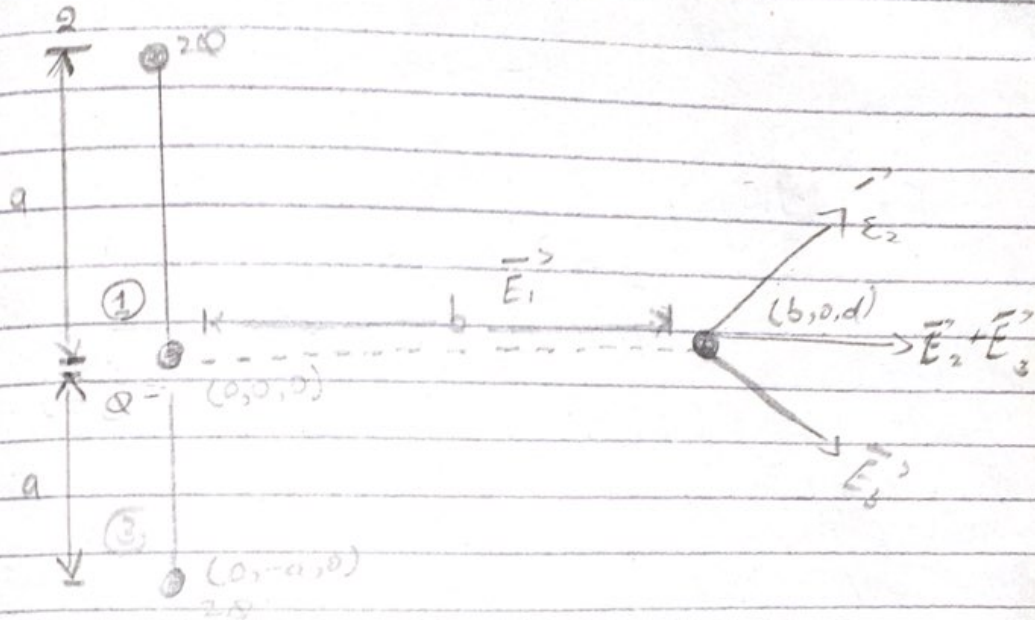 2
2Q
a
E₂
E₁
①
b
(b,0,d)
E₂ + E₃
Q
(0,0,0)
a
E₃
③
(0,-a,0)
2Q